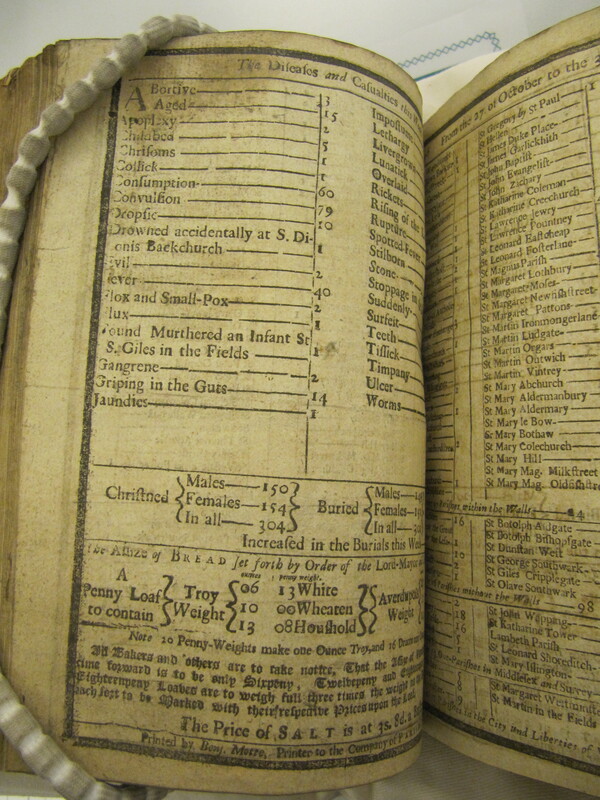 The Diseases and Casualties this
Abortive 3
Aged 15
Apoplexy 2
Childbed 5
Chrisoms 1
Collick 1
Consumption 60
Convulsion 79
Dropsie 10
Drowned accidentally at S. Di-
onis Backchurch 1
Evil 2
Fever 40
Flox and Small-Pox 2
Flux 1
Found Murthered an Infant St
S. Giles in the Fields 1
Gangrene 2
Griping in the Guts 14
Jaundies 1
Impostume
Lethargy
Livergrown
Lunatick
Overlaid
Rickets
Rising of the
Rupture
Spotted Fever
Stilborn
Stone
Stoppage in
Suddenly
Surfeit
Teeth
Tissick
Timpany
Ulcer
Worms
Christned
Males 150
Females 154
In all 304
Buried
Males
Females
In all
Increased in the Burials this Week
the Assize of BREAD set forth by Order of the Lord-Mayor
A
Penny Loaf
to contain
Troy
Weight
ounces penny weight.
06 13 White
10 00 Wheaten
13 08 Houshold
Averdupois
Weight
Note 20 Penny-Weights make one Ounce Troy, and 16 Drams
All Bakers and others are to take notice, That the Assize of
time forward is to be only Sixpeny, Twelvepeny and
Eighteenpeny Loaves are to weigh full three times the weight
each sort to be Marked with their respective Prices upon the
The Price of SALT is at 3s. 8d.
Printed by Benj. Motte, Printer to the Company of
From the 27 of October to the 3
St Gregory by St Paul
St Hellen
St James Duke Place
St James Garlickhith
St John Baptist
St John Evangelist
St John Zachary
St Katharine Coleman
St Katharine Creechurch
St Lawrence Jewry
St Lawrence Pountney
St Leonard Eastcheap
St Leonard Fosterlane
St Magnus Parish
St Margaret Lothbury
St Margaret Moses
St Margaret Newfishstreet
St Margaret Pattons
St Martin Ironmongerlane
St Martin Ludgate
St Martin Orgars
St Martin Outwich
St Martin Vintrey
St Mary Abchurch
St Mary Aldermanbury
St Mary Aldermary
St Mary le Bow
St Mary Bothaw
St Mary Colechurch
St Mary Hill
St Mary Mag. Milkstreet
St Mary Mag. Oldfishstreet
Parishes within the Walls
St Botolph Aldgate
St Botolph Bishopsgate
St Dunstan West
St George Southwark
St Giles Cripplegate
St Olave Southwark
Parishes without the Walls 98
St John Wapping
St Katharine Tower
Lambeth Parish
St Leonard Shoreditch
St Mary Islington
Parishes in Middlesex and Surrey
St Margaret Westminster
St Martin in the Fields
in the City and Liberties of